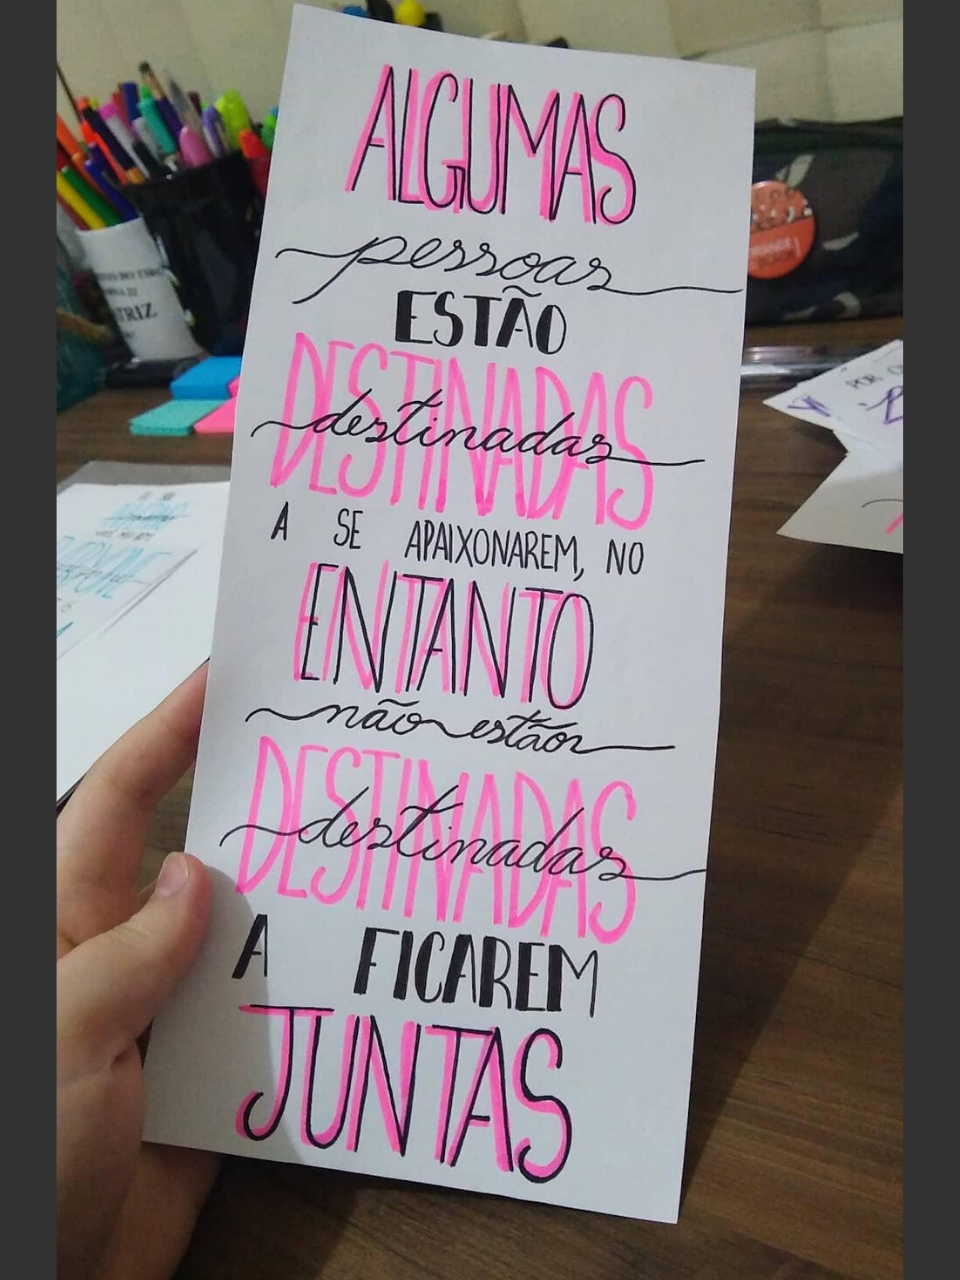 ALGUMAS
pessoas
ESTÃO
DESTINADAS
destinadas
A SE APAIXONAREM, NO
ENTANTO
não estão
DESTINADAS
destinadas
A FICAREM
JUNTAS
TRIZ
POR